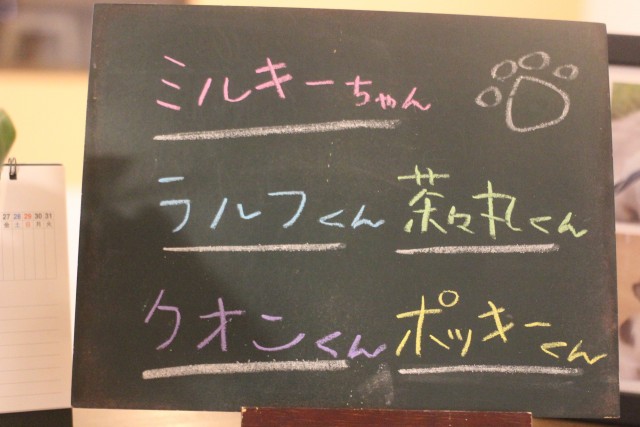 ミルキーちゃん
ラルフくん 茶々丸くん
クオンくん ポッキーくん
27 28 29 30 31